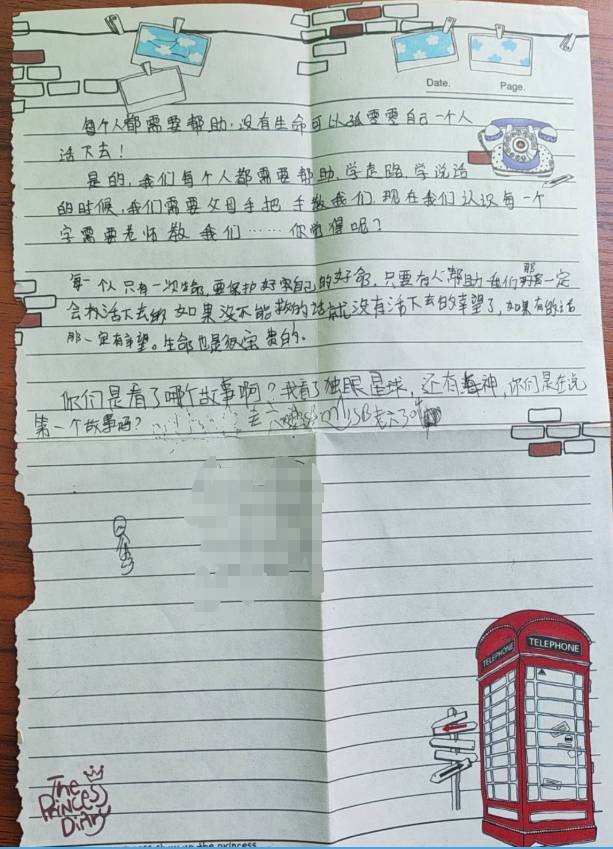 Date.
Page.
每个人都需要帮助.没有生命可以孤零零自己一个人
活下去！
是的,我们每个人都需要帮助.学走路.学说话
的时候,我们需要父母手把手教我们.现在我们认识每一个
字需要老师教我们……你觉得呢？
每一个人只有一次生命,要保护好自己的好命,只要有人帮助我们那一定
会存活下去如果没不能救的话就没有活下去的幸望了,如果有的话
那一定有幸望。生命也是很宝贵的。
你们是看了哪个故事啊？我看了独眼星球，还有海神，你们是在说
第一个故事吗？
TELEPHONE
TELEPHONE
The
PRINCESS
DIARY